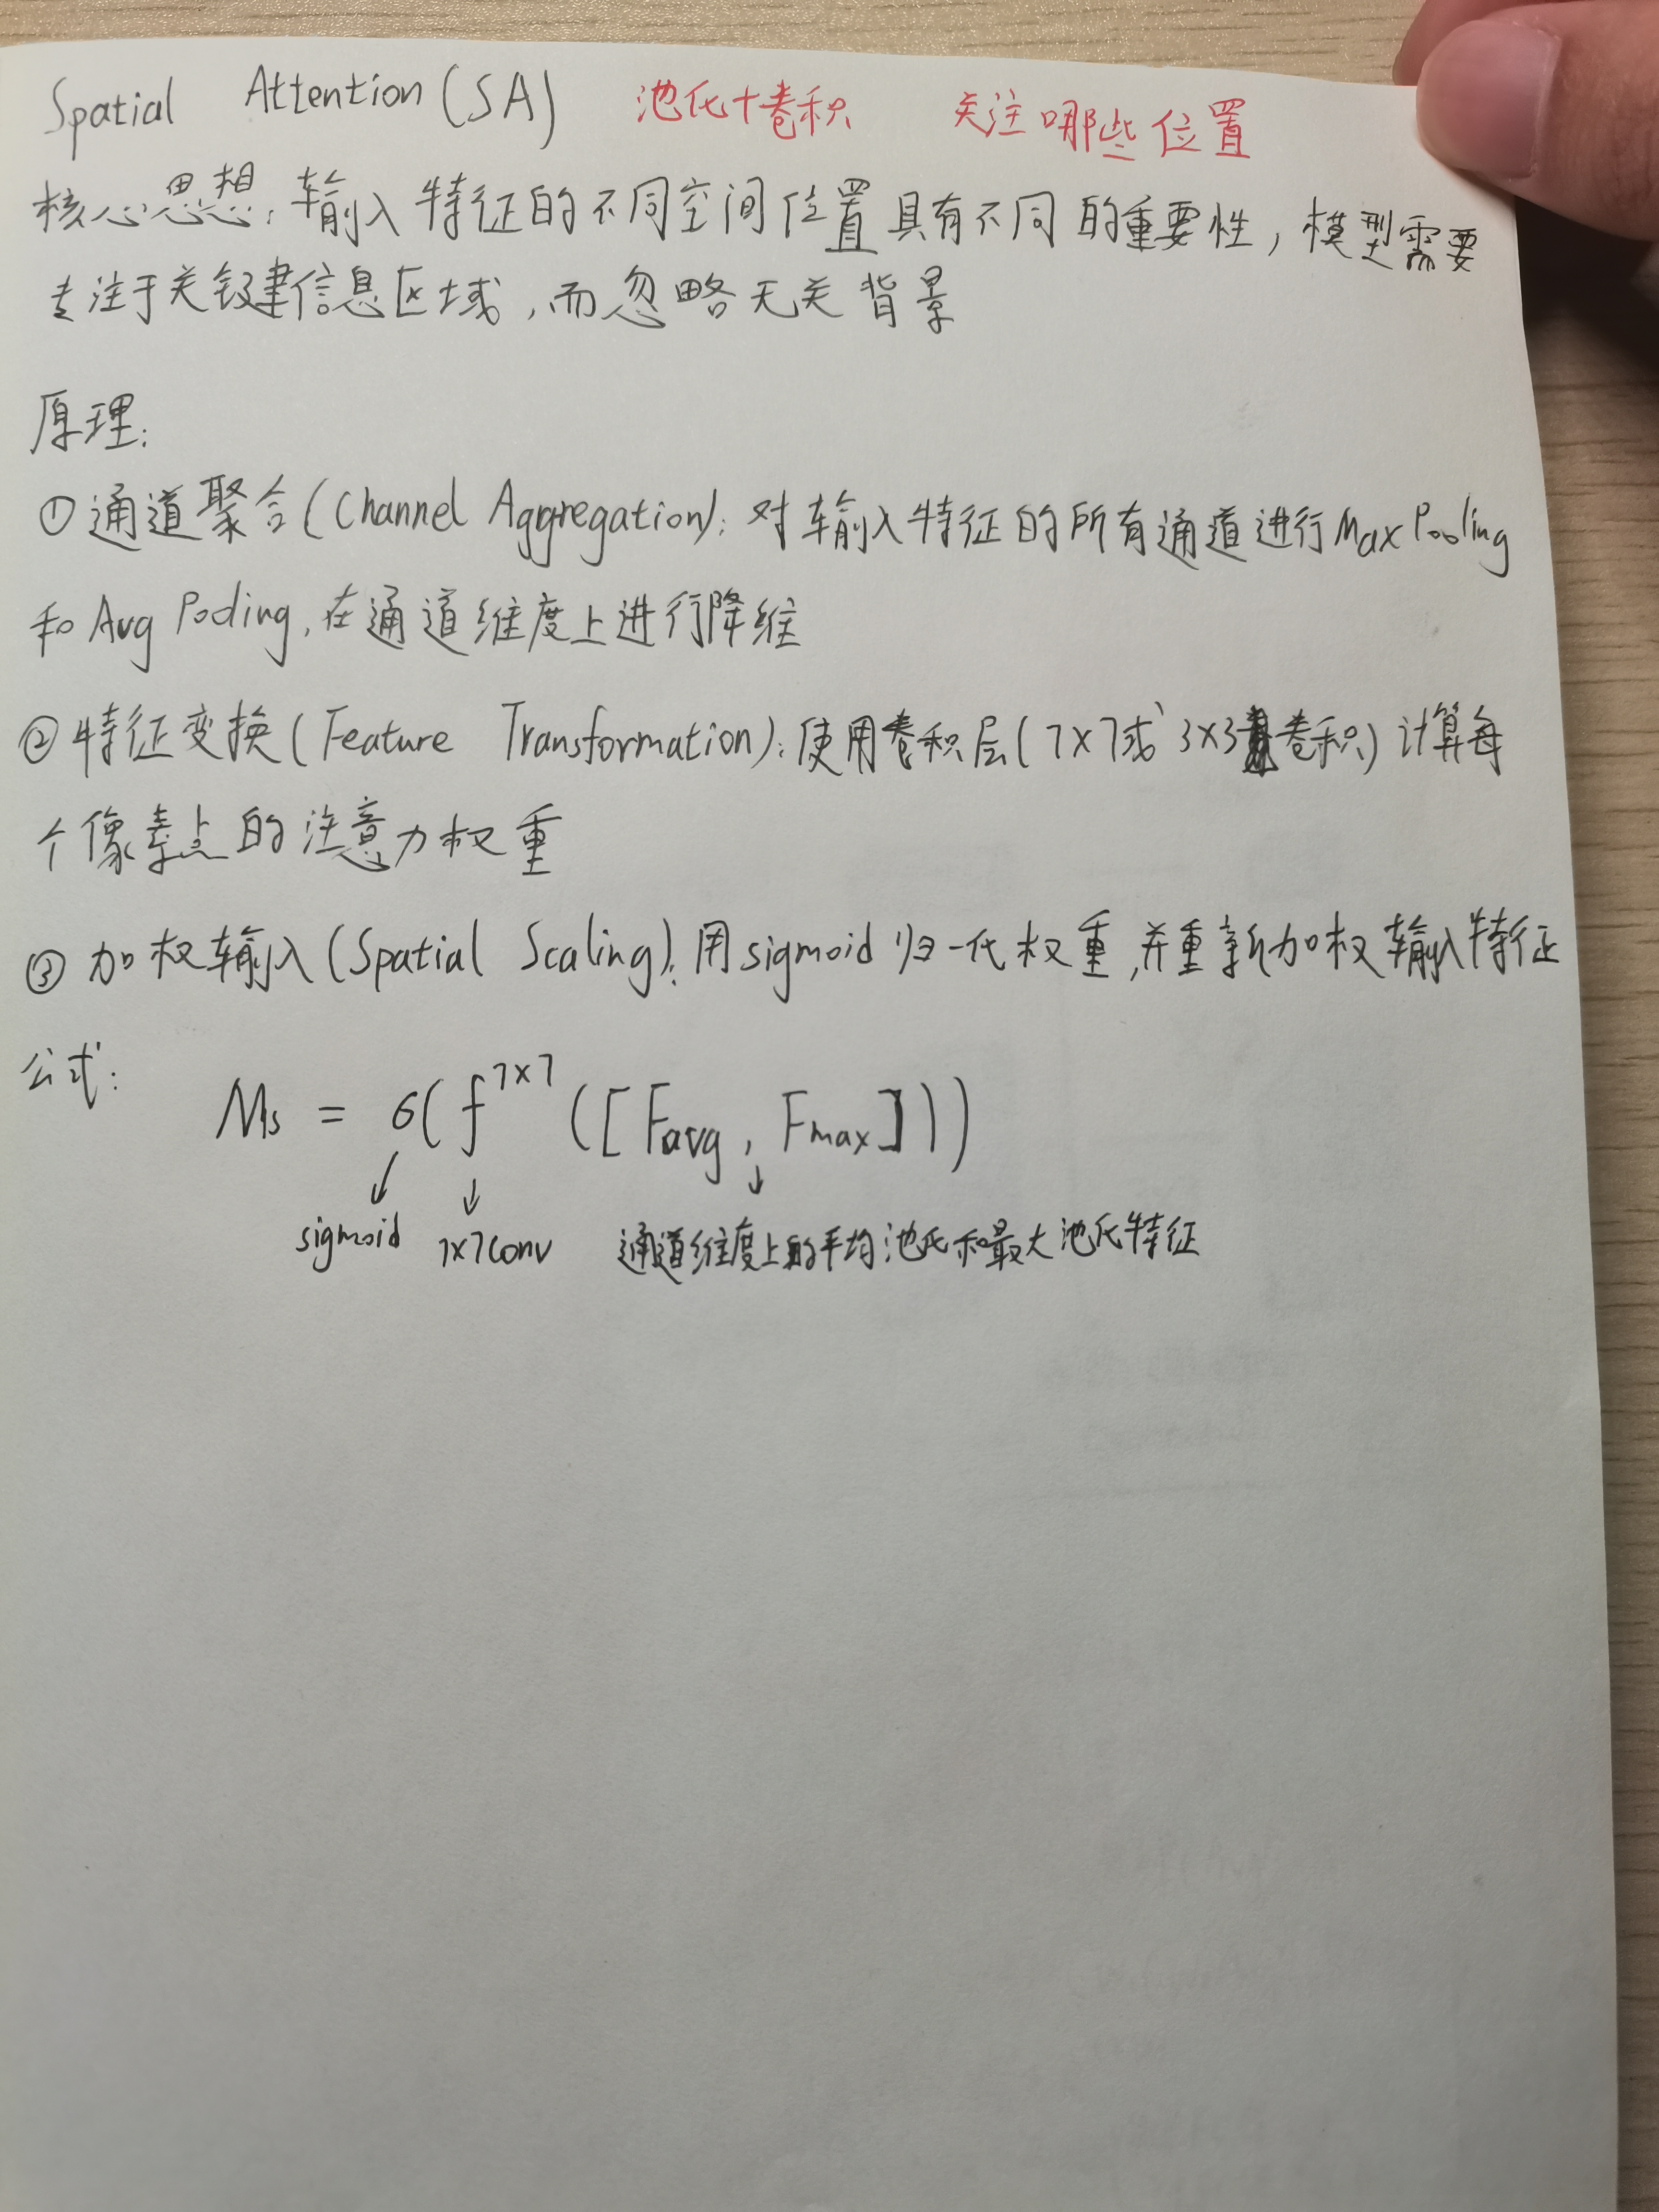 Spatial Attention (SA) 池化+卷积 关注哪些位置
核心思想：输入特征的不同空间位置具有不同的重要性，模型需要
专注于关键信息区域，而忽略无关背景
原理：
① 通道聚合(Channel Aggregation)：对输入特征的所有通道进行Max Pooling
和 Avg Pooling，在通道维度上进行降维
② 特征变换(Feature Transformation)：使用卷积层(7×7或3×3卷积)计算每
个像素点的注意力权重
③ 加权输入(Spatial Scaling)：用sigmoid归一化权重，并重新加权输入特征
公式：
Ms = σ(f^{7×7}([Favg, Fmax]))
sigmoid 7×7conv 通道维度上的平均池化和最大池化特征